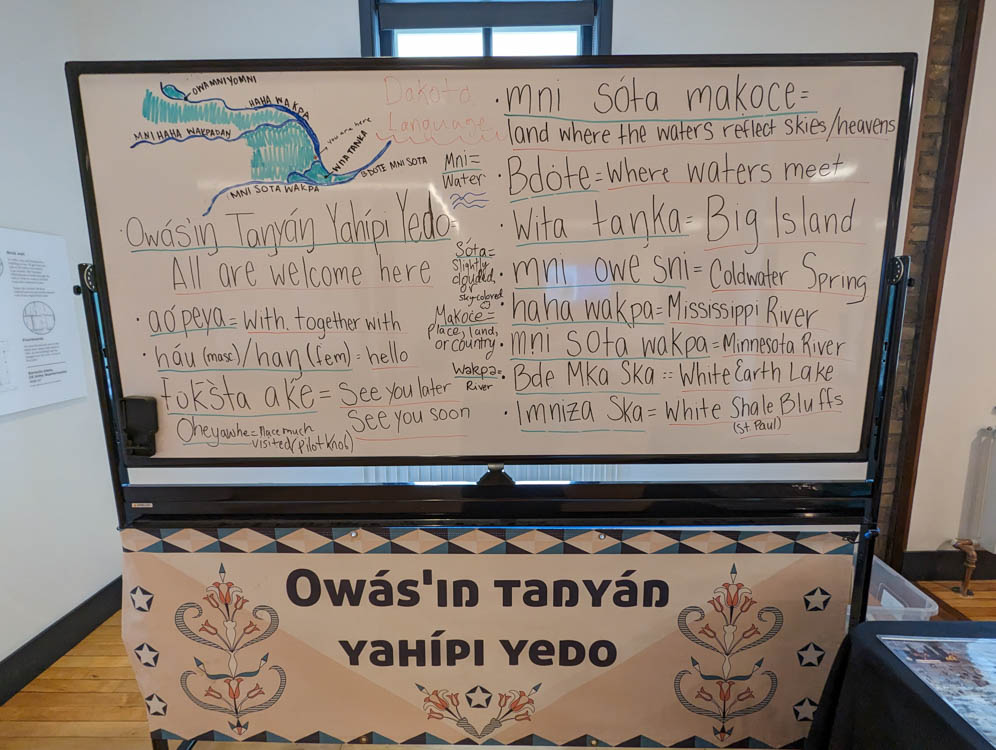 OWAMNIYOMNI
HAHA WAKPA
MNI HAHA WAKPADAN
You are here
WITA TANKA
BDOTE MNI SOTA
MNI SOTA WAKPA
Dakota
Language
Owás'iŋ Taŋyáŋ Yahípi Yedo=
All are welcome here
• aópeya = With. together with
• háu (masc)/haŋ (fem) = hello
Ťokšta aké = See you later
See you soon
Oheyawhe = Place much
visited/pilot knob)
Mni=
Water
Sóta=
Slightly
clouded,
or
sky-colored
Makoċe=
place, land,
or country
Wakpa=
River
• mni sóta makoce =
land where the waters reflect skies/heavens
• Bdóte = Where waters meet
• Wita taŋka = Big Island
• mni owe sni = Coldwater Spring
• haha wakpa = Mississippi River
• mni sota wakpa = Minnesota River
• Bde Mka Ska :: White Earth Lake
• Imniza Ska = White Shale Bluffs
(St Paul)
Owás'iŋ taŋyáŋ
yahípi yedo